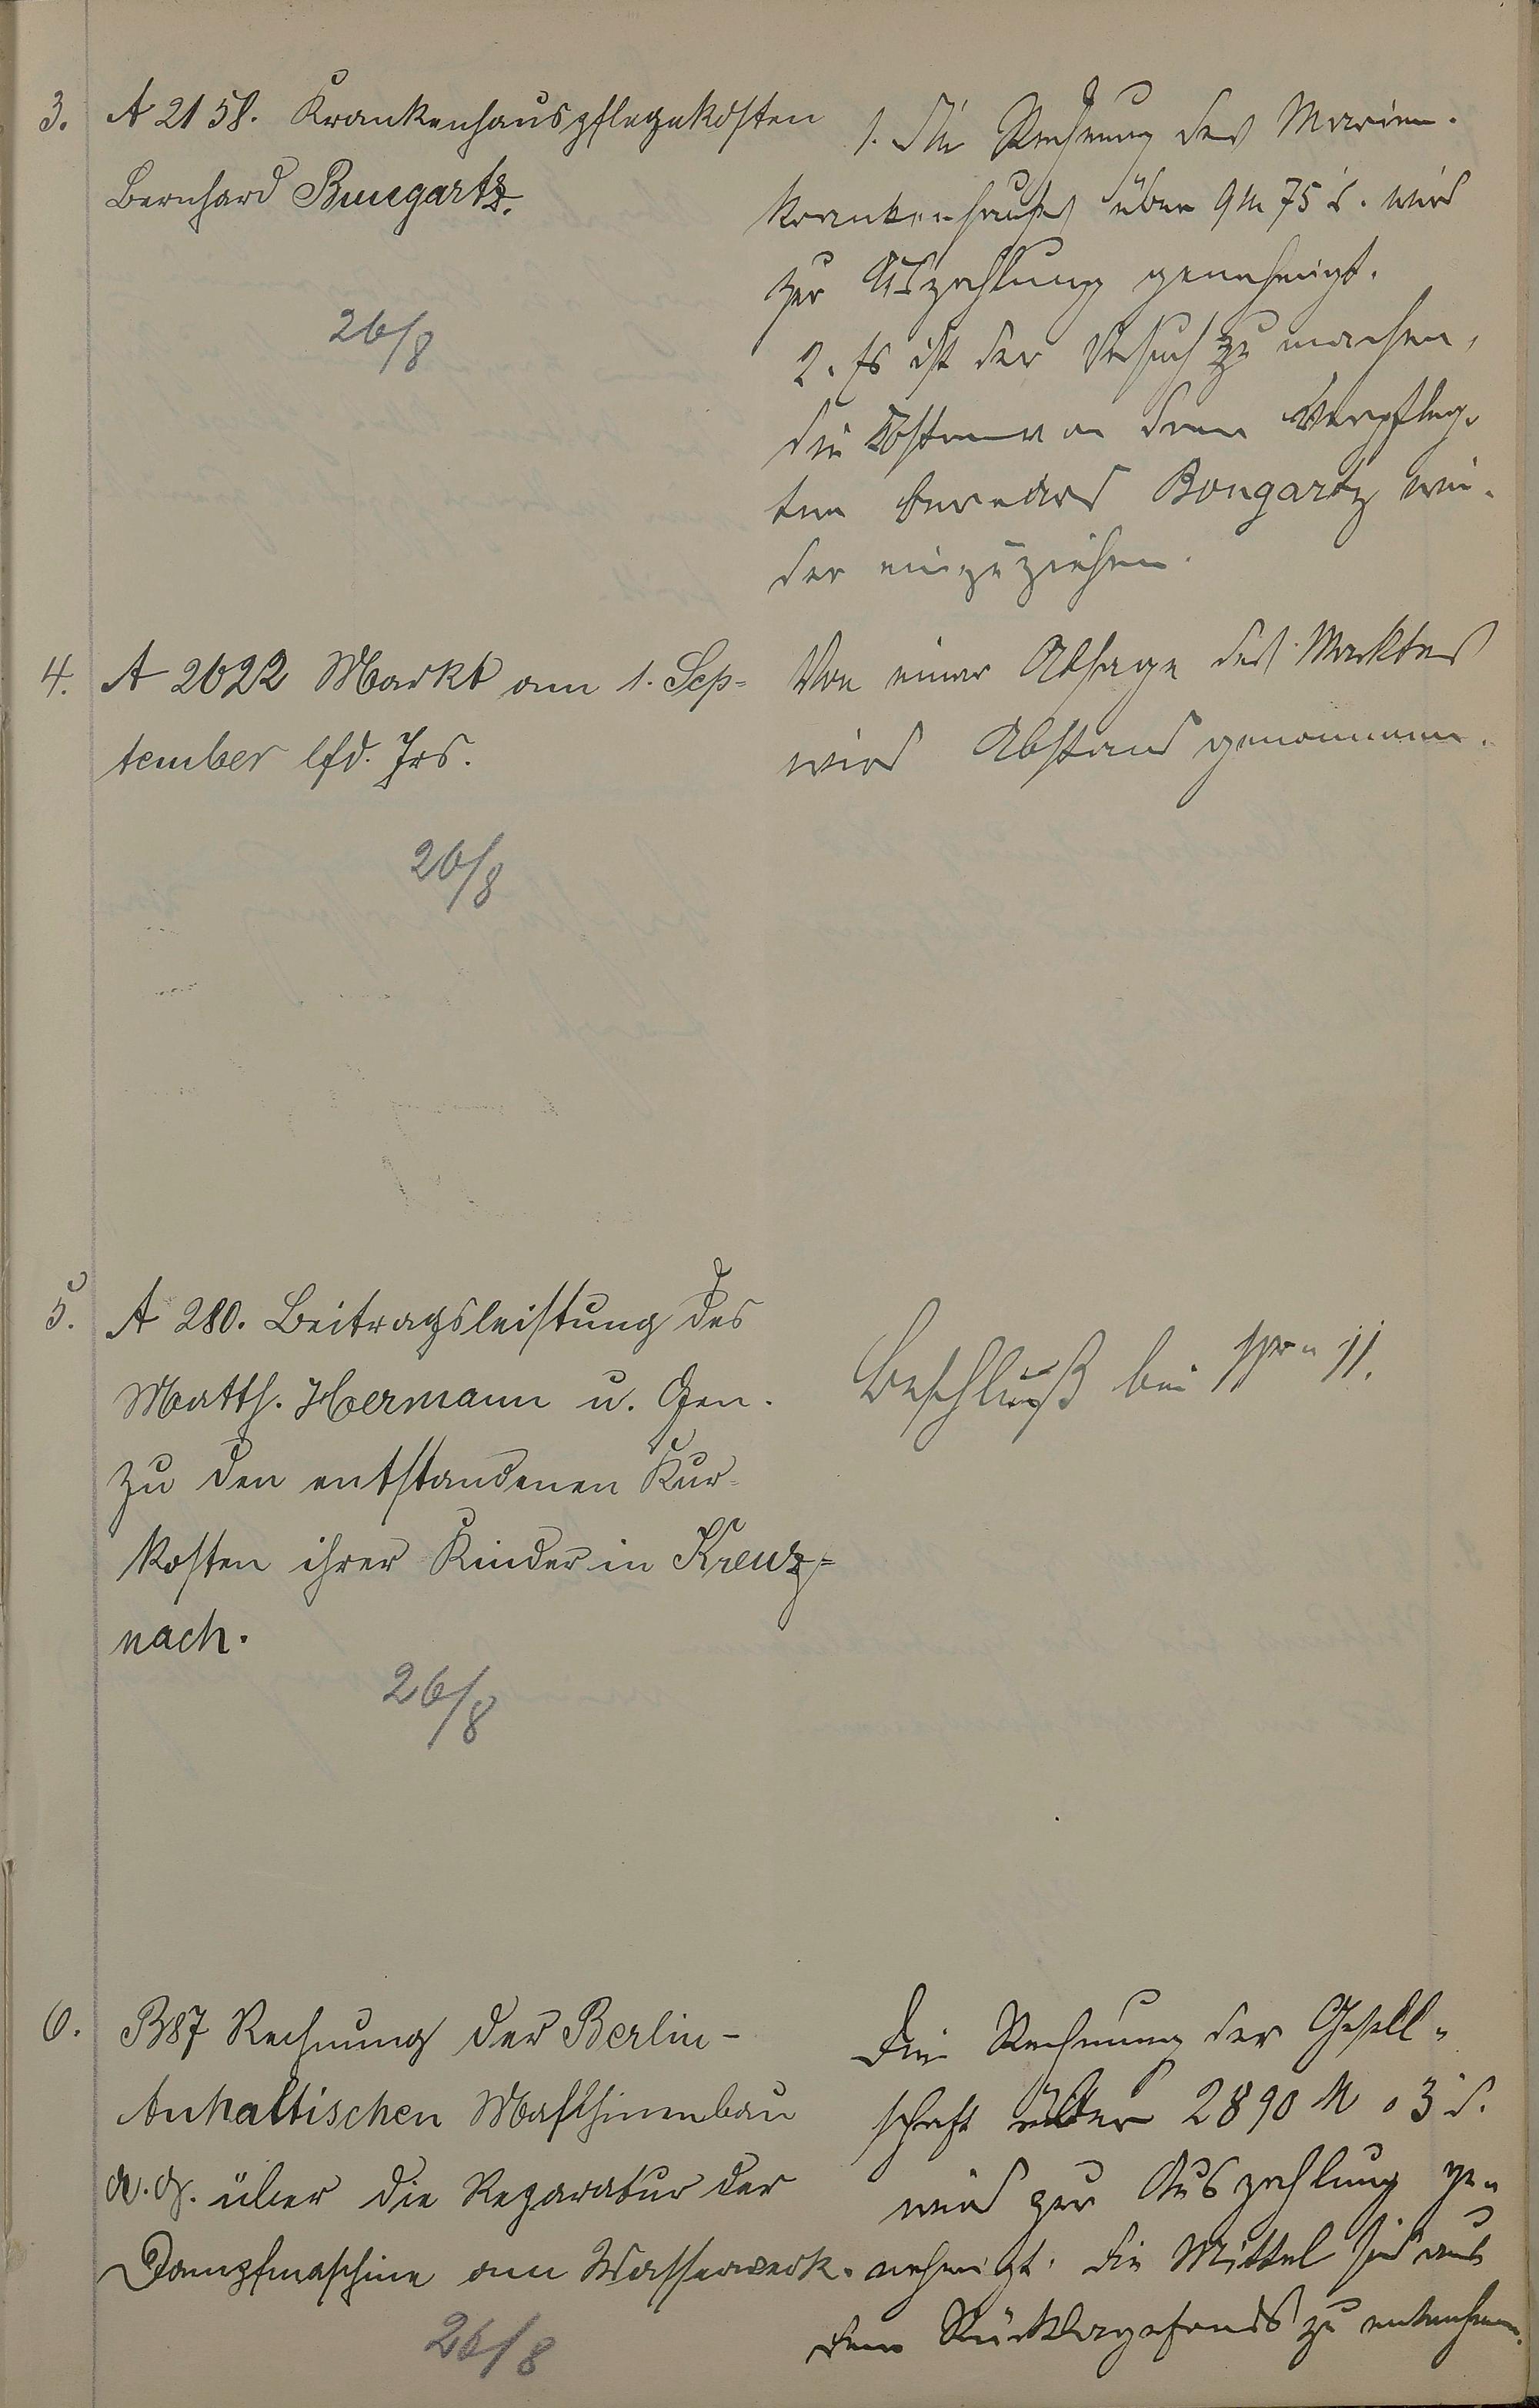 3. A 2158. Krankenhauspflegekosten
Bernhard Bungartz.
26/8
1. Die Rechnung des Marien-
krankenhauses über 9 M 75 d. wird
zur Auszahlung genehmigt.
2. Es ist der Versuch zu machen,
die Kosten von dem Verpfleg-
ten Bernard Bongartz wie-
der einzuziehen.
4. A 2622 Markt am 1. Sep-
tember lfd. Jrs.
26/8
Von einer Absage des Marktes
wird Abstand genommen.
5. A 280. Beitragsleistung des
Matth. Hermann u. Gen.
zu den entstandenen Kur-
kosten ihrer Kinder in Kreuz-
nach.
26/8
Beschluß bei 11.
6. B 87 Rechnung der Berlin-
Anhaltischen Maschinenbau
A. G. über die Reparatur der
Dampfmaschine am Wasserwerk.
26/8
Die Rechnung der Gesell-
schaft über 2890 M 03 d.
wird zur Auszahlung ge-
nehmigt. Die Mittel sind aus
dem Rücklagefonds zu entnehmen.